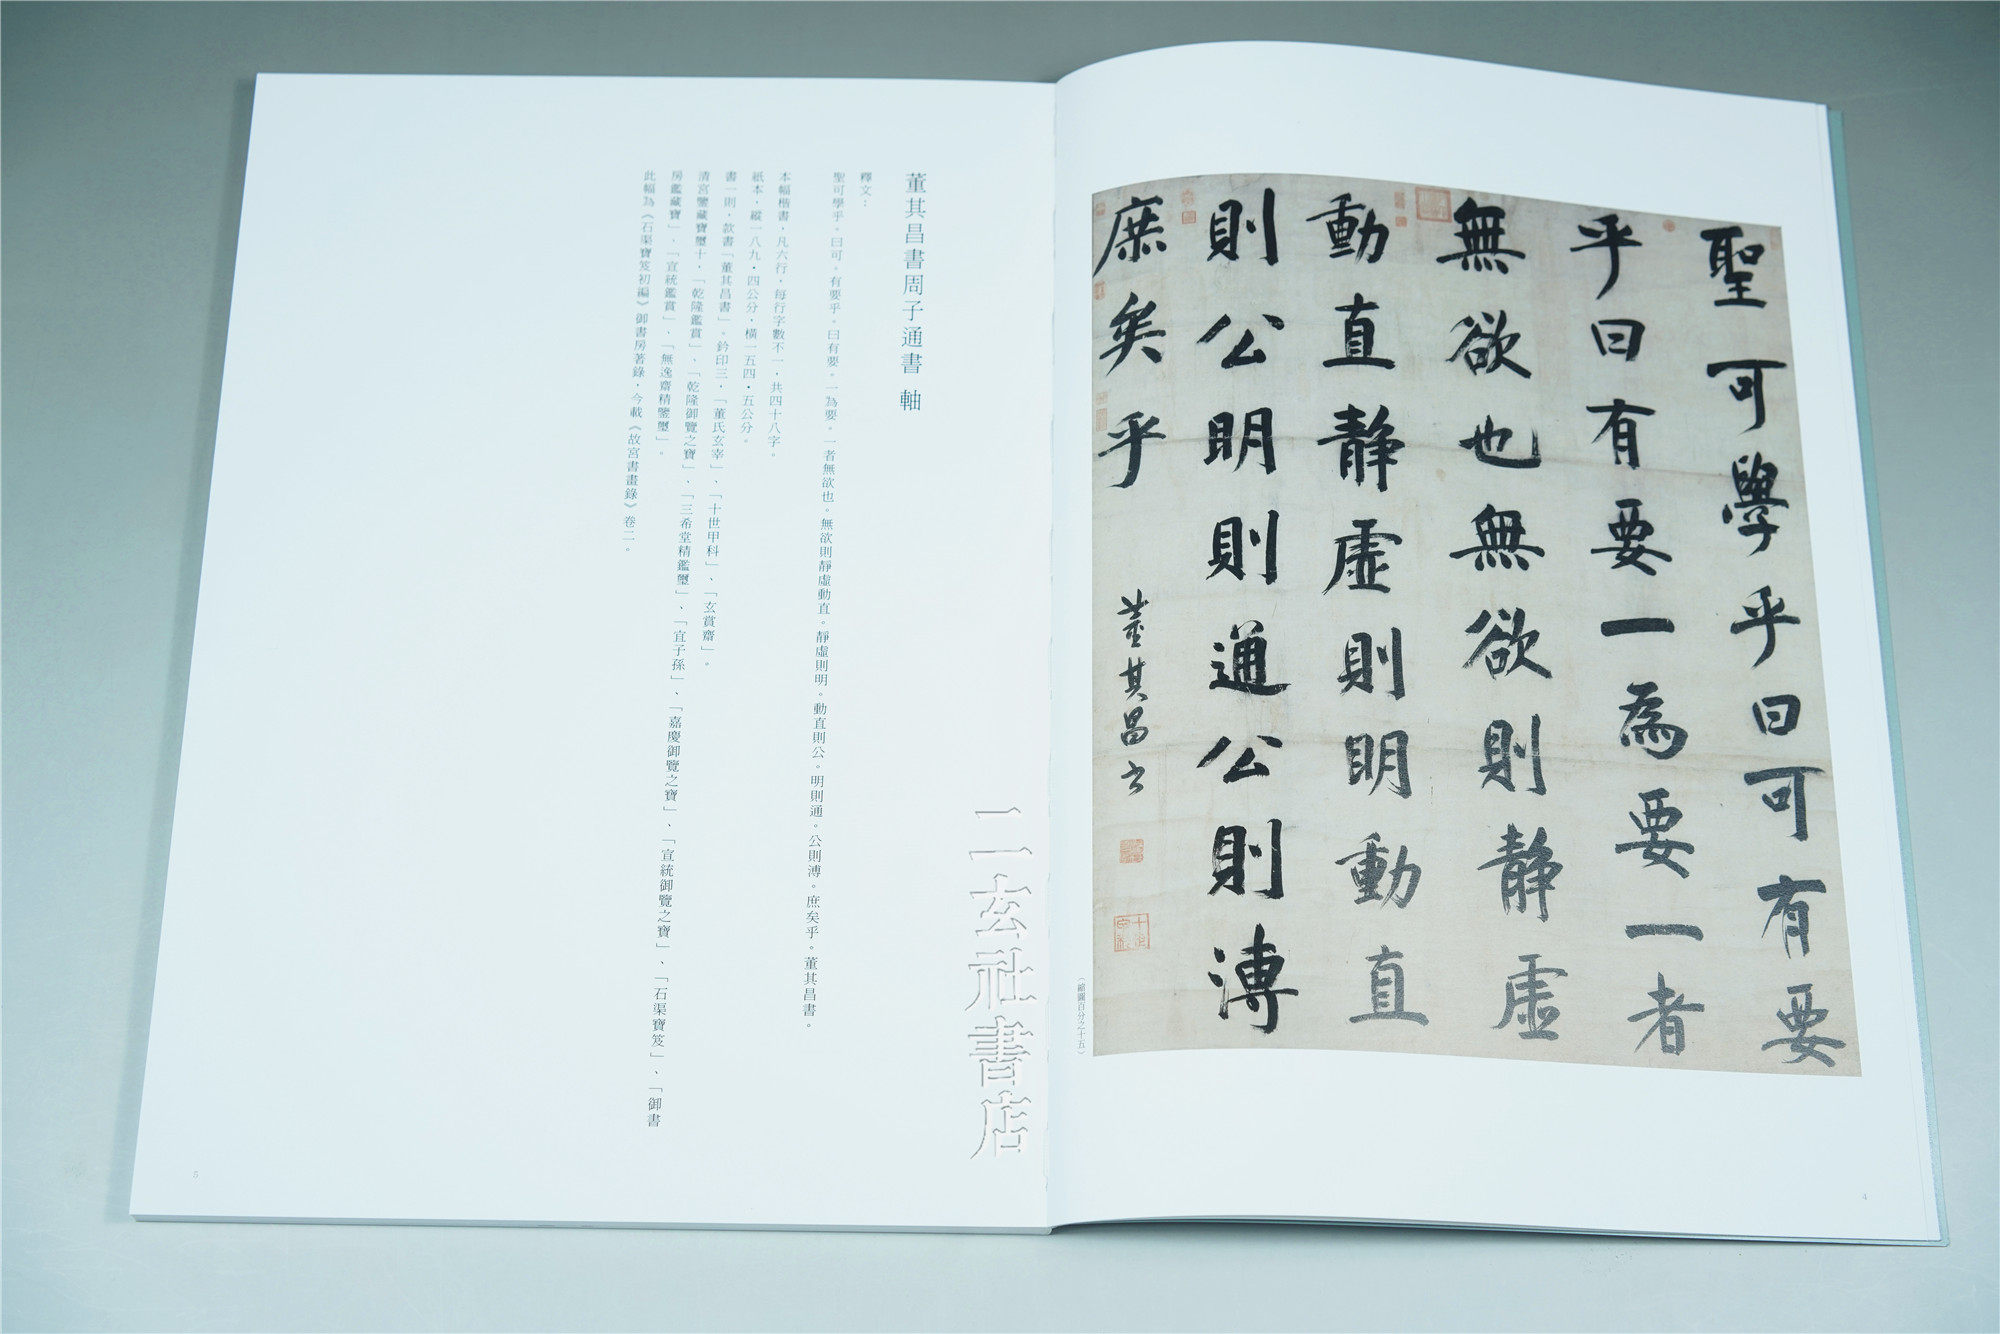 聖可學乎曰可有要
乎曰有要一為要一者
無欲也無欲則静虛
動直静虛則明動直
則公明則通公則溥
庶矣乎
董其昌书
（縮圖百分之十五）
4
董其昌書周子通書 軸
釋文：
聖可學乎。曰可。有要乎。曰有要。一為要。一者無欲也。無欲則靜虛動直。靜虛則明。動直則公。明則通。公則溥。庶矣乎。董其昌書。
本幅楷書，凡六行，每行字數不一，共四十八字。
紙本，縱一八九．四公分，橫一五四．五公分。
書一則，款書「董其昌書」。鈐印三，「董氏玄宰」、「十世甲科」、「玄賞齋」。
清宮鑒藏寶璽十，「乾隆鑑賞」、「乾隆御覽之寶」、「三希堂精鑑璽」、「宜子孫」、「嘉慶御覽之寶」、「宣統御覽之寶」、「石渠寶笈」、「御書
房鑑藏寶」、「宣統鑑賞」、「無逸齋精鑒璽」。
此幅為《石渠寶笈初編》御書房著錄，今載《故宮書畫錄》卷二。
5
二玄社書店